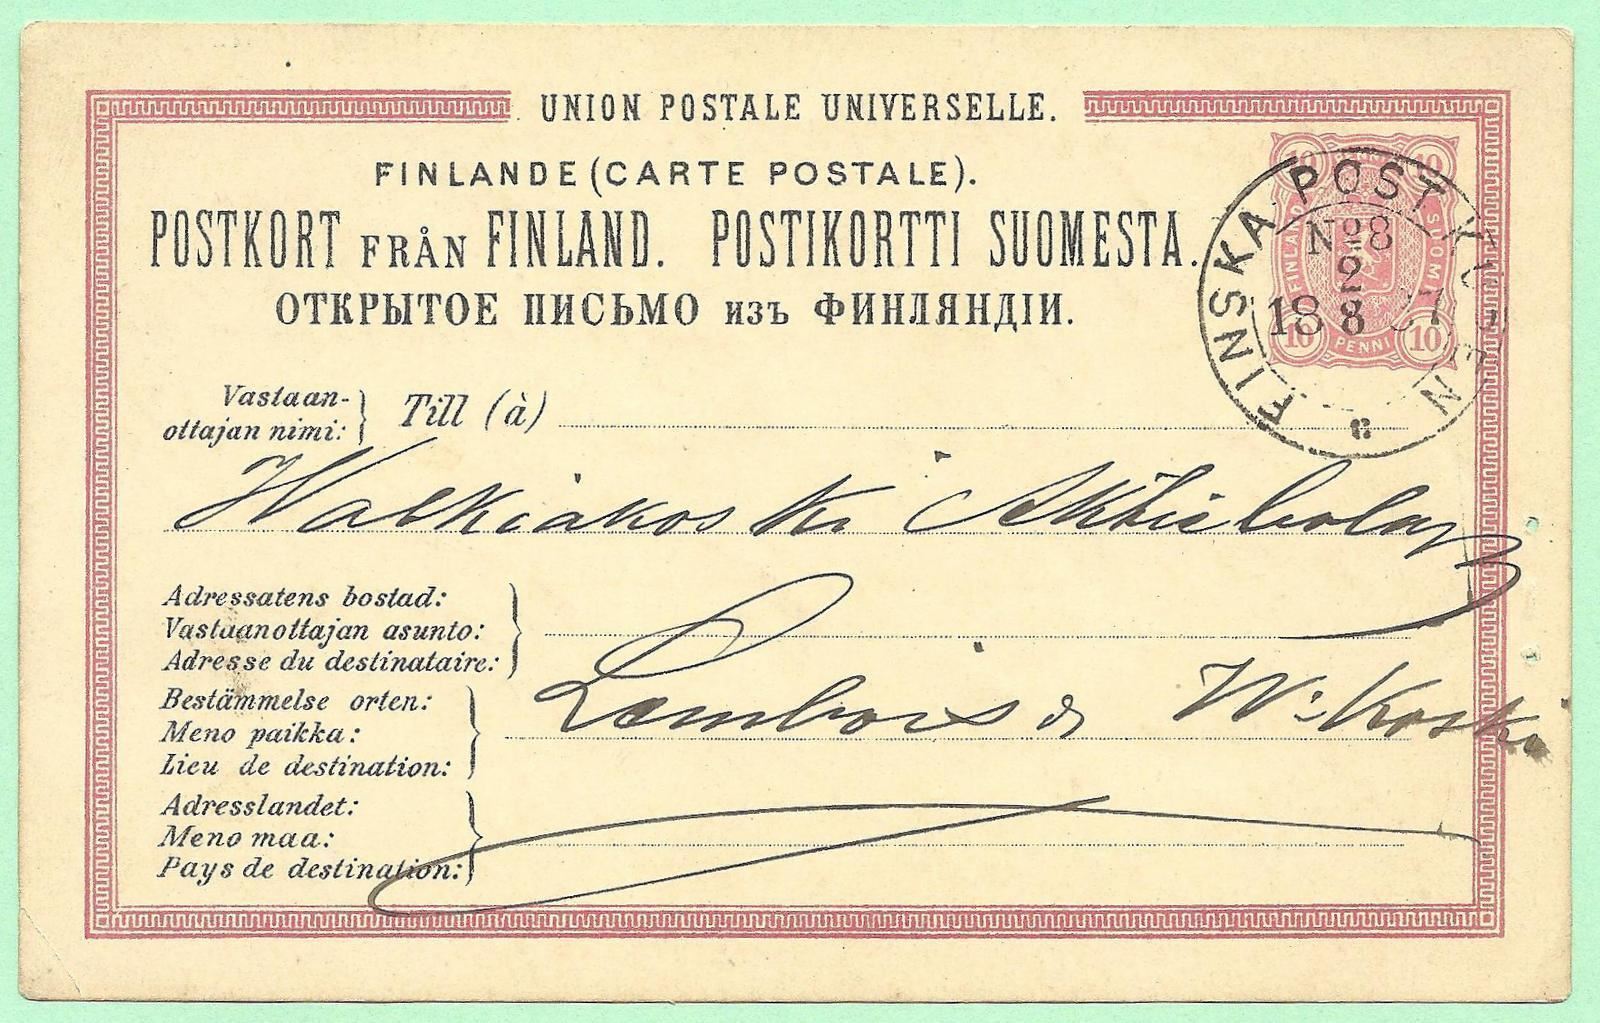 UNION POSTALE UNIVERSELLE.
FINLANDE (CARTE POSTALE).
POSTKORT FRÅN FINLAND. POSTIKORTTI SUOMESTA.
ОТКРЫТОЕ ПИСЬМО изъ ФИНЛЯНДІИ.
10 10
FINLAND SUOMI
10 PENNI 10
FINSKA POST KUPEN
No 8
2
18 8 87
Vastaan-
ottajan nimi: Till (à)
Walkiakoski Aktiebolag
Adressatens bostad:
Vastaanottajan asunto:
Adresse du destinataire:
Bestämmelse orten:
Meno paikka:
Lieu de destination:
Lembois & W:Koski
Adresslandet:
Meno maa:
Pays de destination: